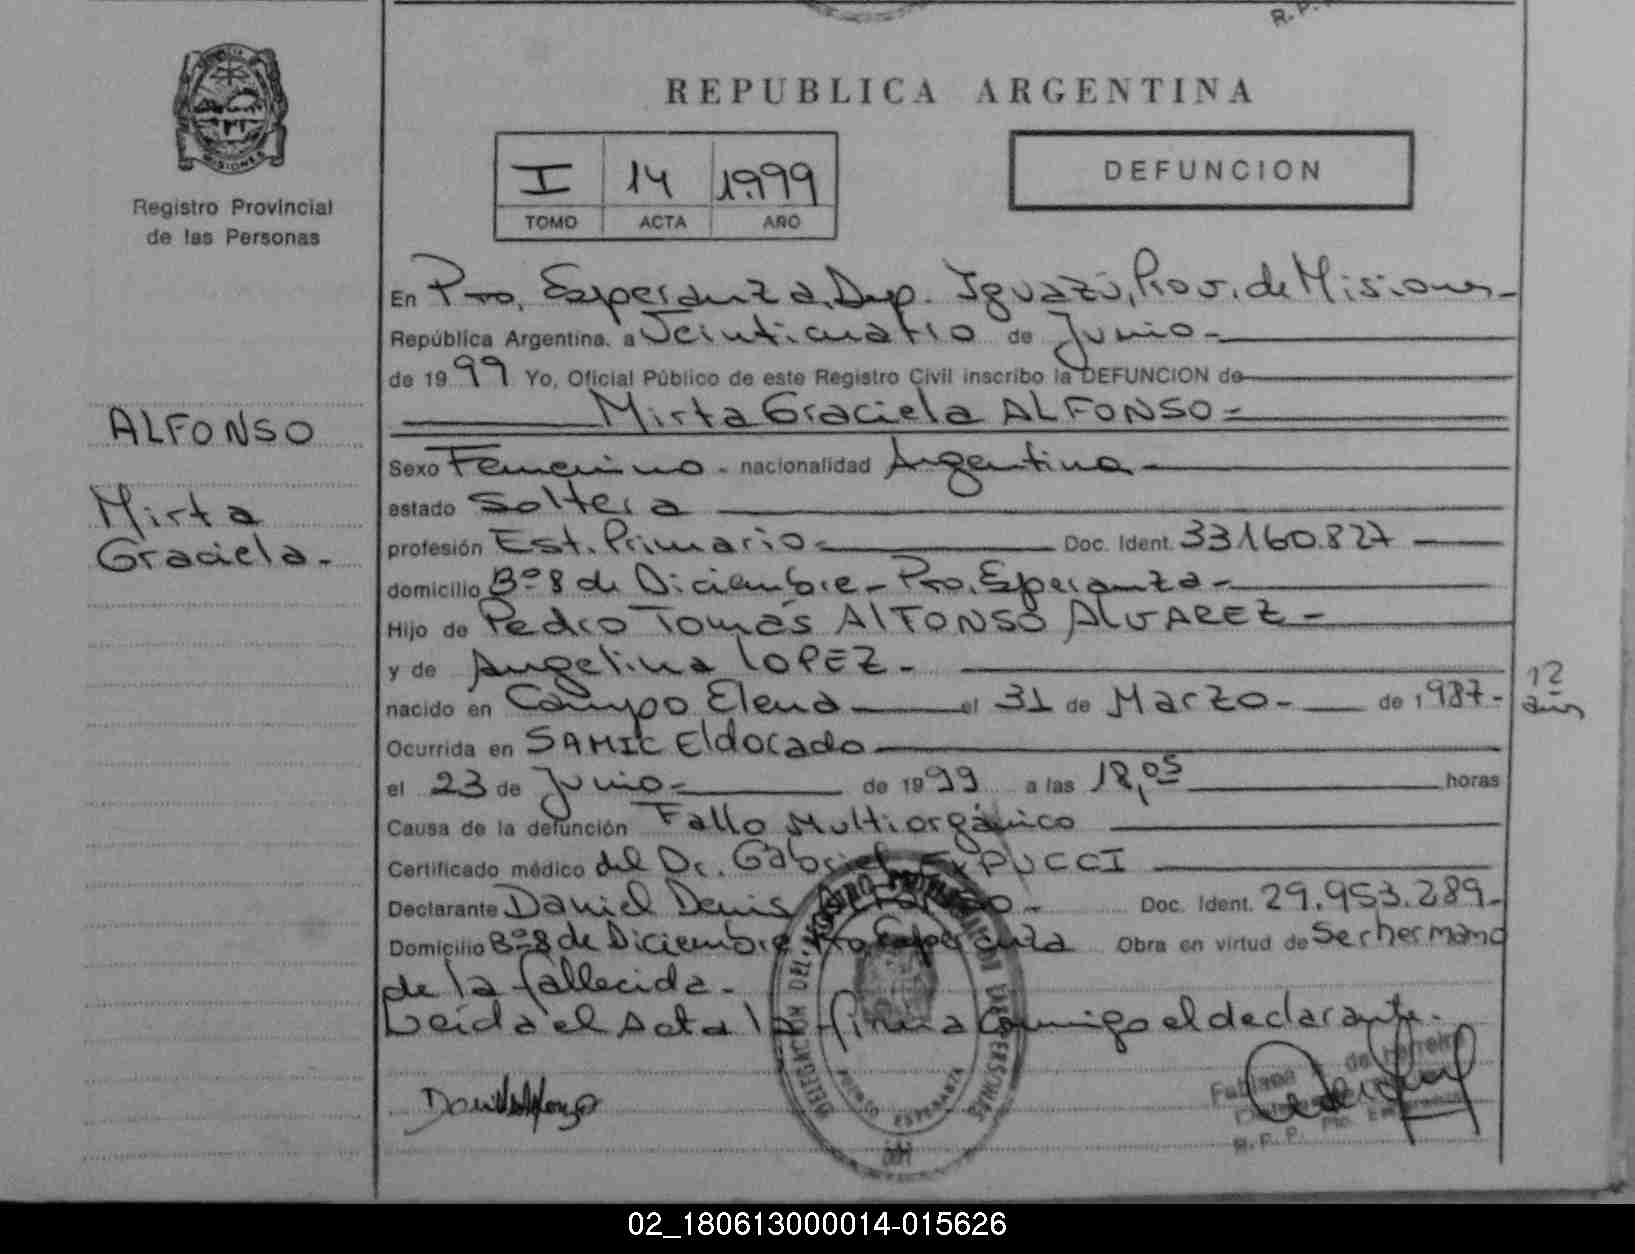 R. P.
MISIONES
Registro Provincial
de las Personas
ALFONSO
Mirta
Graciela.-
REPUBLICA ARGENTINA
I 14 1999
TOMO ACTA AÑO
DEFUNCION
En Pto. Esperanza, Dep. Iguazú, Prov. de Misiones-
República Argentina. a Veinticuatro de Junio.-
de 1999 Yo, Oficial Público de este Registro Civil inscribo la DEFUNCION de
Mirta Graciela ALFONSO=
Sexo Femenino - nacionalidad Argentina-
estado Soltera
profesión Est. Primario- Doc. Ident. 33160.827
domicilio Bº 8 de Diciembre- Pto. Esperanza-
Hijo de Pedro Tomás AlFONSO AlVAREZ-
y de Angelina lOPEZ.-
nacido en Campo Elena el 31 de Marzo- de 1987- 12 años
Ocurrida en SAMIC Eldorado
el 23 de Junio- de 1999 a las 18,05 horas
Causa de la defunción Fallo Multiorgánico
Certificado médico del Dr. Gabriel PUCCI
Declarante Daniel Denis Doc. Ident. 29.953.289-
Domicilio Bº 8 de Diciembre Pto. Esperanza Obra en virtud de Ser hermano
de la fallecida.-
Leida el Acta la firma Conmigo el declarante.-
DELEGACION DEL REGISTRO PROVINCIAL DE LAS PERSONAS
PUERTO ESPERANZA
Daniel Alfonzo
Fabiana de Ferreira
R. P. P. Pto. Esperanza
02_180613000014-015626